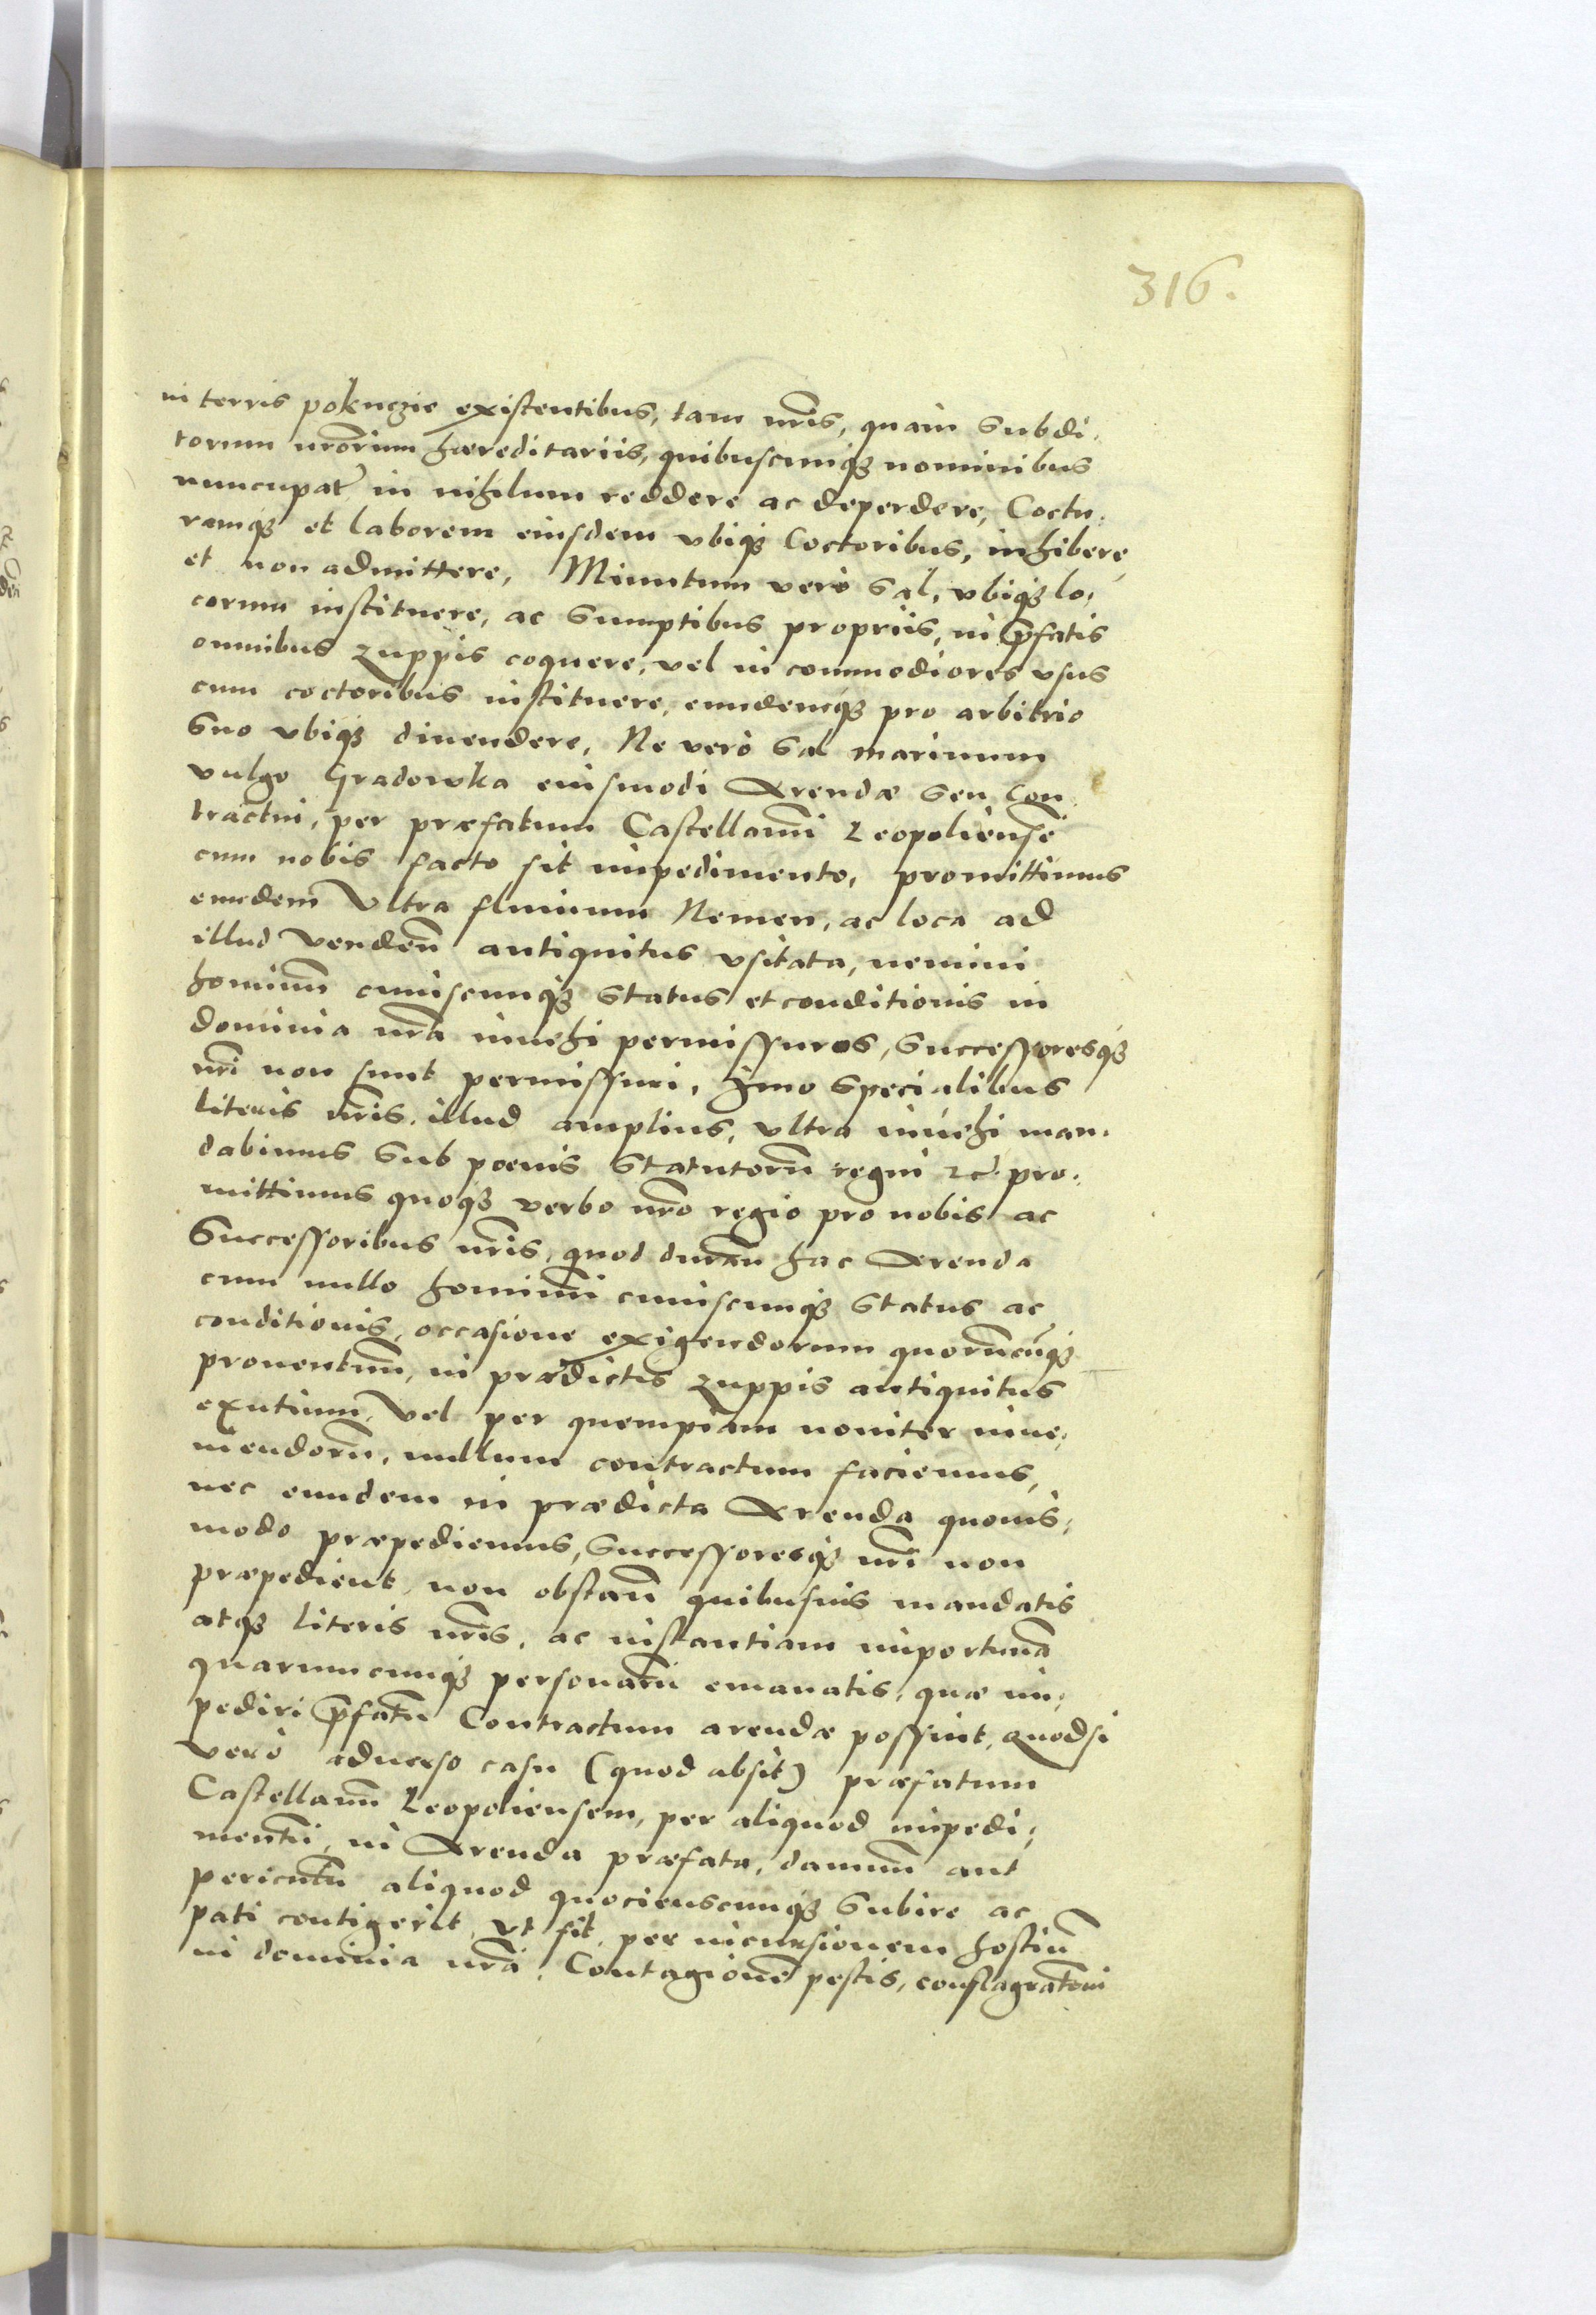 316.
in terris pokuczie existentibus, tam nr̃is, quàm Subdi,
torum nr̃orum hæreditariis, quibuscunqȝ nominibus
nuncupat̃ in nihilum reddere ac deperdere, Coctu,
ramqȝ et laborem eiusdem vbiqȝ Coctoribus, inhibere,
et non admittere, Minutum verò Sal, vbiqȝ lo,
corum instituere, ac Sumptibus propriis, in p̃fatis
omnibus zuppis coquere, vel in commodiores vsus
cum coctoribus instituere, eundemqȝ pro arbitrio
Suo vbiqȝ diuendere, Ne verò Sal marinum
vulgo Gradowka eiusmodi Arendæ Seu Con
tractui, per præfatum Castellanũ Leopoliensẽ
cum nobis facto sit impedimento, promittimus
eundem Vltra fluuium Nemen, ac loca ad
illud venden̄ antiquitus vsitata, nemini
hominũ cuiuscunqȝ Status et conditionis in
dominia nr̃a inuehi permissuros, Successoresqȝ
nr̃i non sunt permissuri, Imo Specialibus
literis nr̃is, illud amplius, vltra inuehi man,
dabimus Sub poenis Statutorũ regni &c. pro,
mittimus quoqȝ verbo nr̃o regio pro nobis ac
Successoribus nr̃is, quod duran̄ hac Arenda
cum nullo hominũ cuiuscunqȝ Status ac
conditionis, occasione exigendorum quorũcũqȝ
prouentuũ, in prædictis zuppis antiquitus
exutium, Vel per quempiam nouiter inue,
niendorũ, nullum contractum faciemus,
nec eundem in prædicta Arenda quouis,
modo præpediemus, Successoresqȝ nr̃i non
præpedient, non obstan̄ quibusuis mandatis
atqȝ literis nr̃is, ac instantiam importunã
quarumcunqȝ personarũ emanatis, quæ im,
pediri p̃fatũ Contractum arendæ possint, quodsi
verò aduerso casu (quod absit) præfatum
Castellanũ Leopoliensem, per aliquod impedi,
mentũ, in Arenda præfata, damnũ aut
periculũ aliquod quocienscunqȝ Subire ac
pati contigerit, vt fit, per incursionem hostiũ
in dominia nr̃a, Contagionẽ pestis, conflagratõni